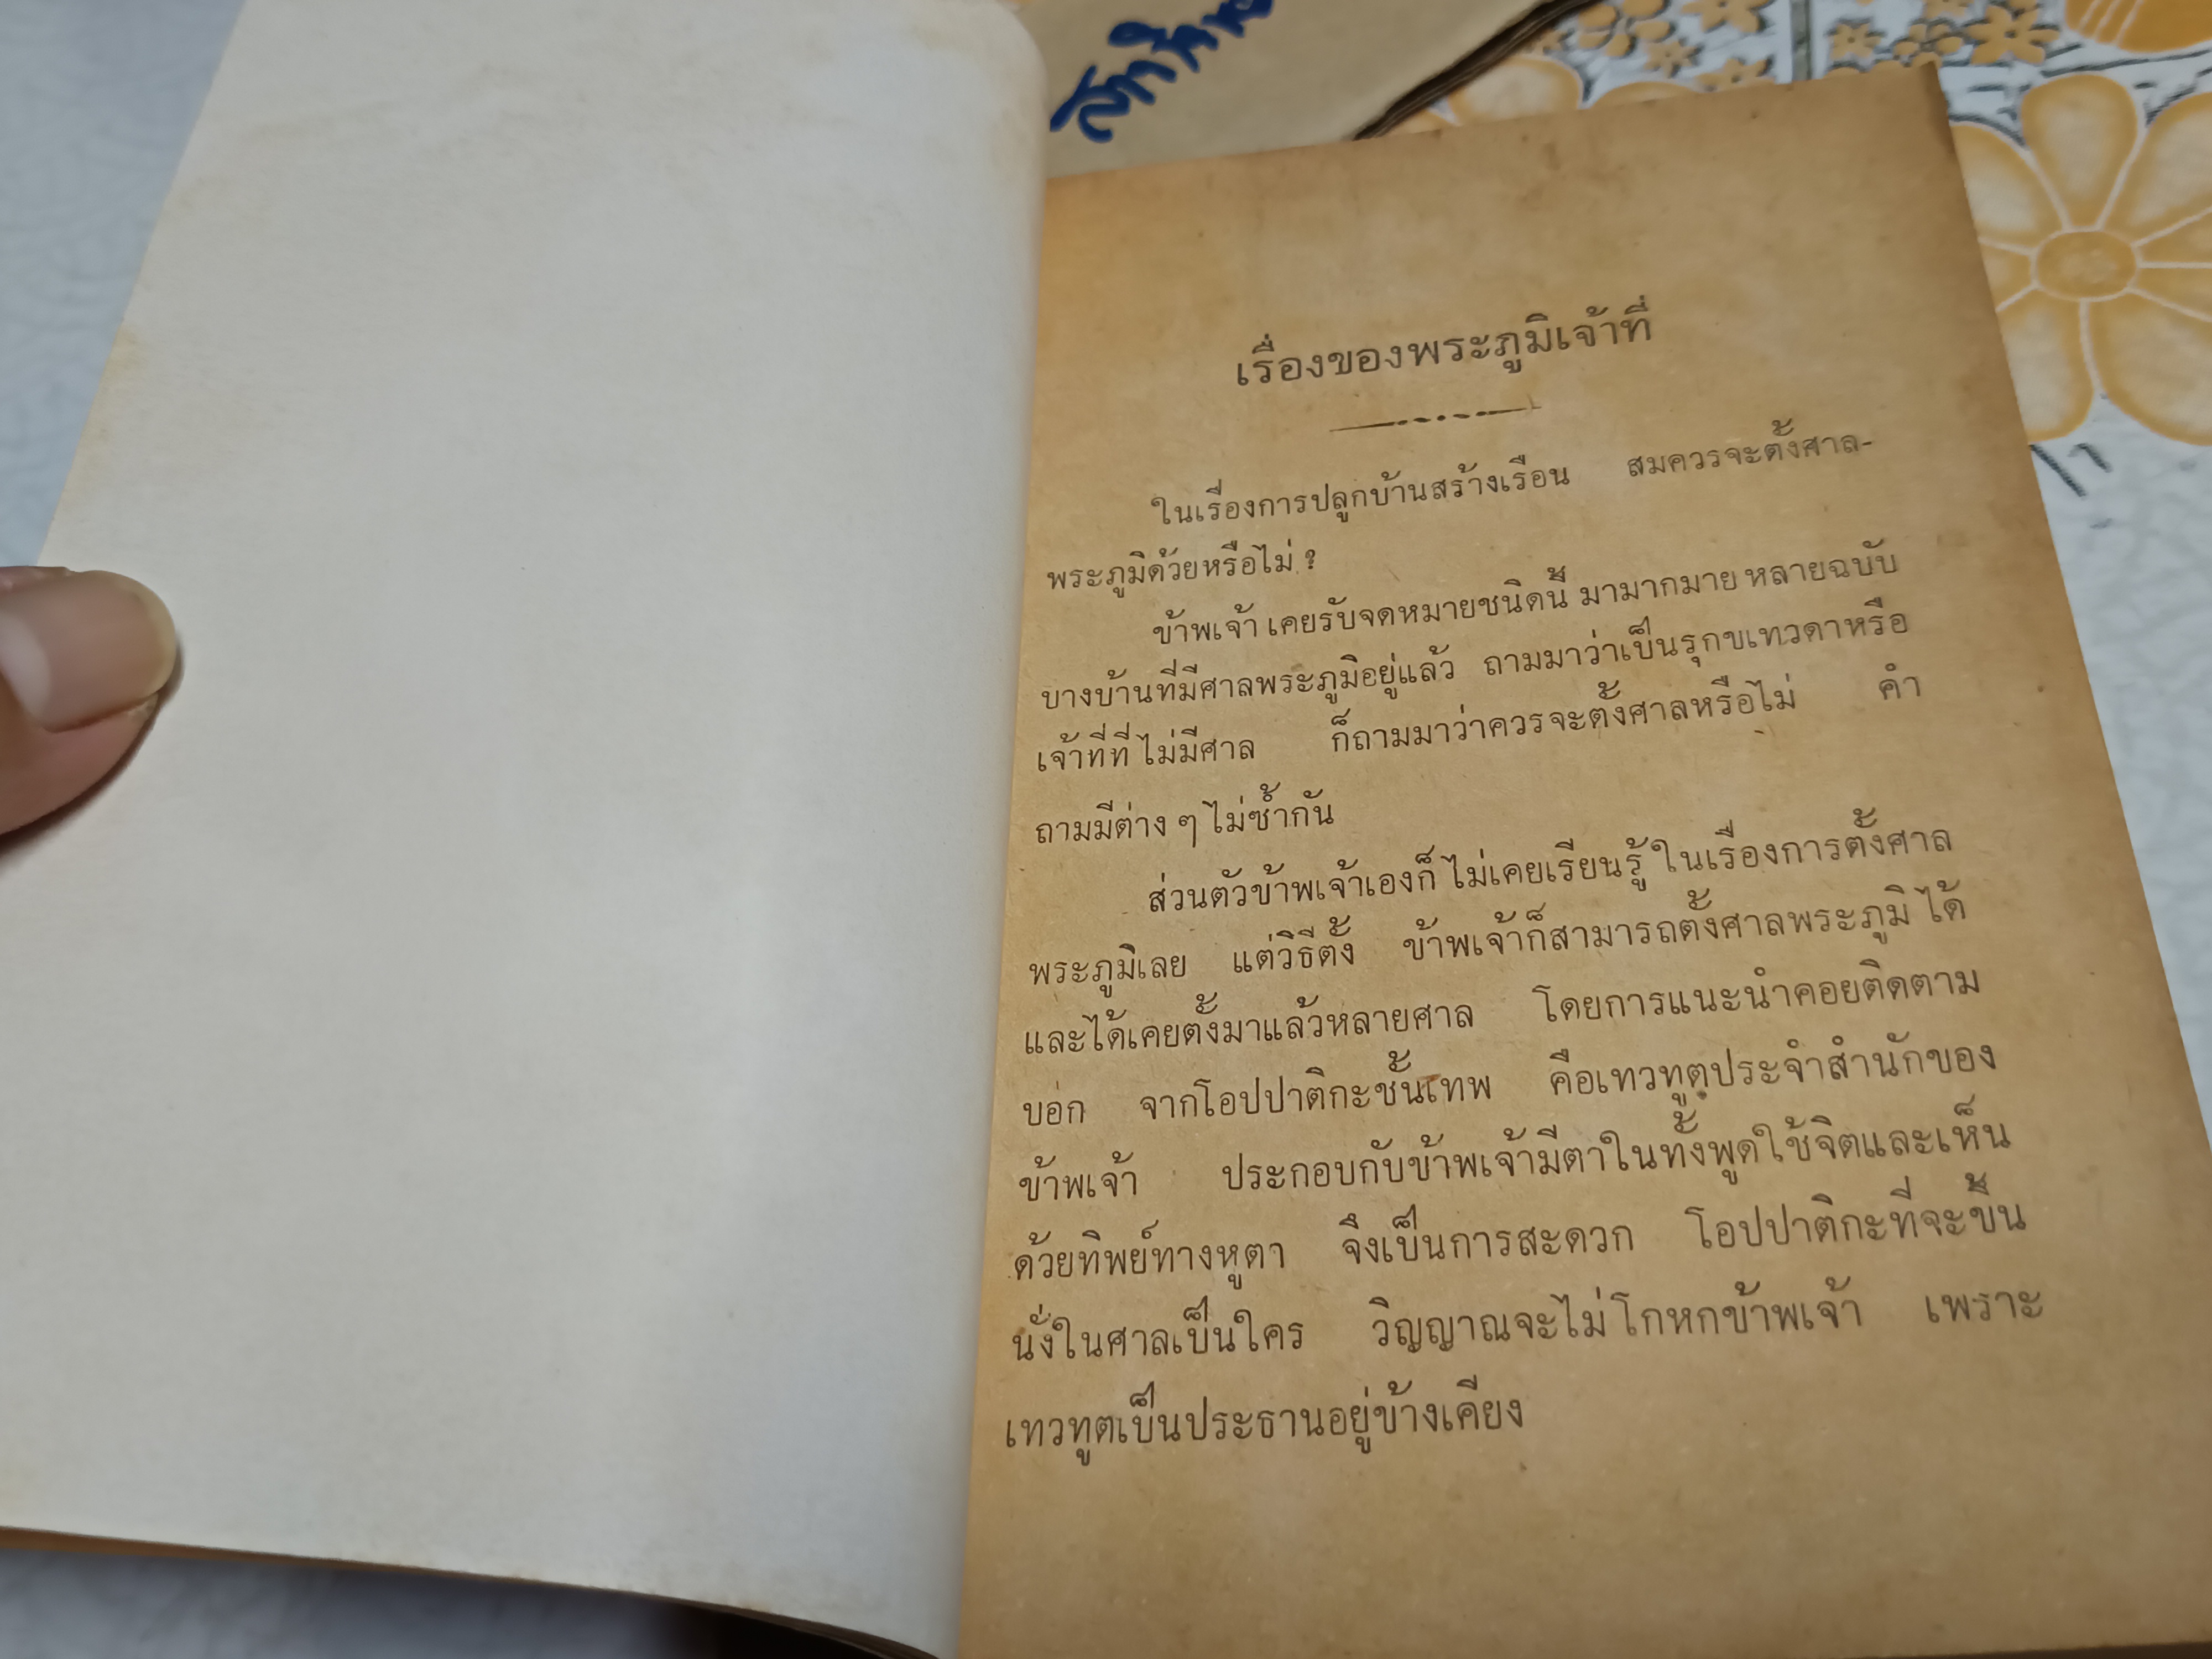 เรื่องของพระภูมิเจ้าที่
ในเรื่องการปลูกบ้านสร้างเรือน สมควรจะตั้งศาล-
พระภูมิด้วยหรือไม่ ?
ข้าพเจ้า เคยรับจดหมายชนิดนี้ มามากมาย หลายฉบับ
บางบ้านที่มีศาลพระภูมิอยู่แล้ว ถามมาว่าเป็นรุกขเทวดาหรือ
เจ้าที่ที่ ไม่มีศาล ก็ถามมาว่าควรจะตั้งศาลหรือไม่ คำ
ถามมีต่าง ๆ ไม่ซ้ำกัน
ส่วนตัวข้าพเจ้าเองก็ ไม่เคยเรียนรู้ ในเรื่องการตั้งศาล
พระภูมิเลย แต่วิธีตั้ง ข้าพเจ้าก็สามารถตั้งศาลพระภูมิ ได้
และได้เคยตั้งมาแล้วหลายศาล โดยการแนะนำคอยติดตาม
บอก จากโอปปาติกะชั้นเทพ คือเทวทูตประจำสำนักของ
ข้าพเจ้า ประกอบกับข้าพเจ้ามีตาในทั้งพูดใช้จิตและเห็น
ด้วยทิพย์ทางหูตา จึงเป็นการสะดวก โอปปาติกะที่จะขึ้น
นั่งในศาลเป็นใคร วิญญาณจะไม่ โกหกข้าพเจ้า เพราะ
เทวทูตเป็นประธานอยู่ข้างเคียง